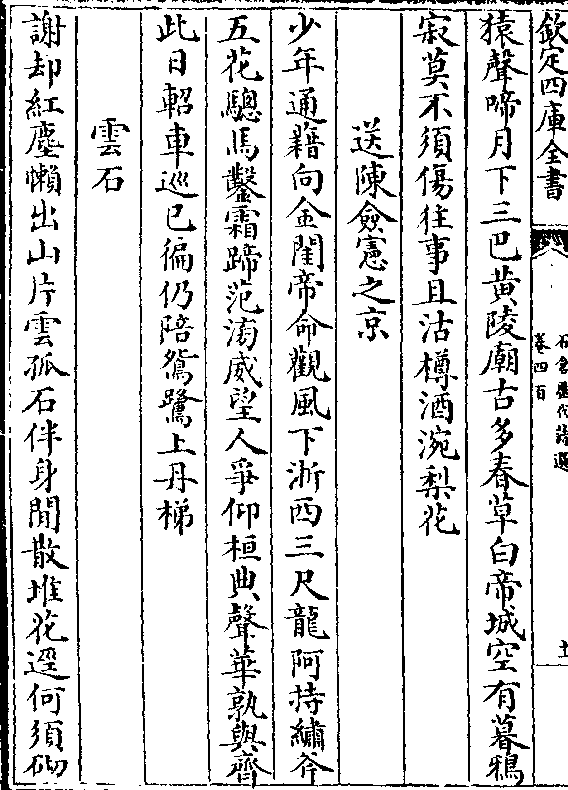 欽定四庫全書
石倉歷代詩選
卷四百
十
猿聲啼月下三巴黄陵廟古多春草白帝城空有暮鴉
寂莫不須傷往事且沽樽酒涴梨花
送陳僉憲之京
少年通籍向金閨帝命觀風下浙西三尺龍阿持繡斧
五花驄馬鑿霜蹄范滂威望人爭仰桓典聲華孰與齊
此日軺車巡已徧仍陪鴛鷺上丹梯
雲石
謝却紅塵懶出山片雲孤石伴身閒散堆花逕何須砌